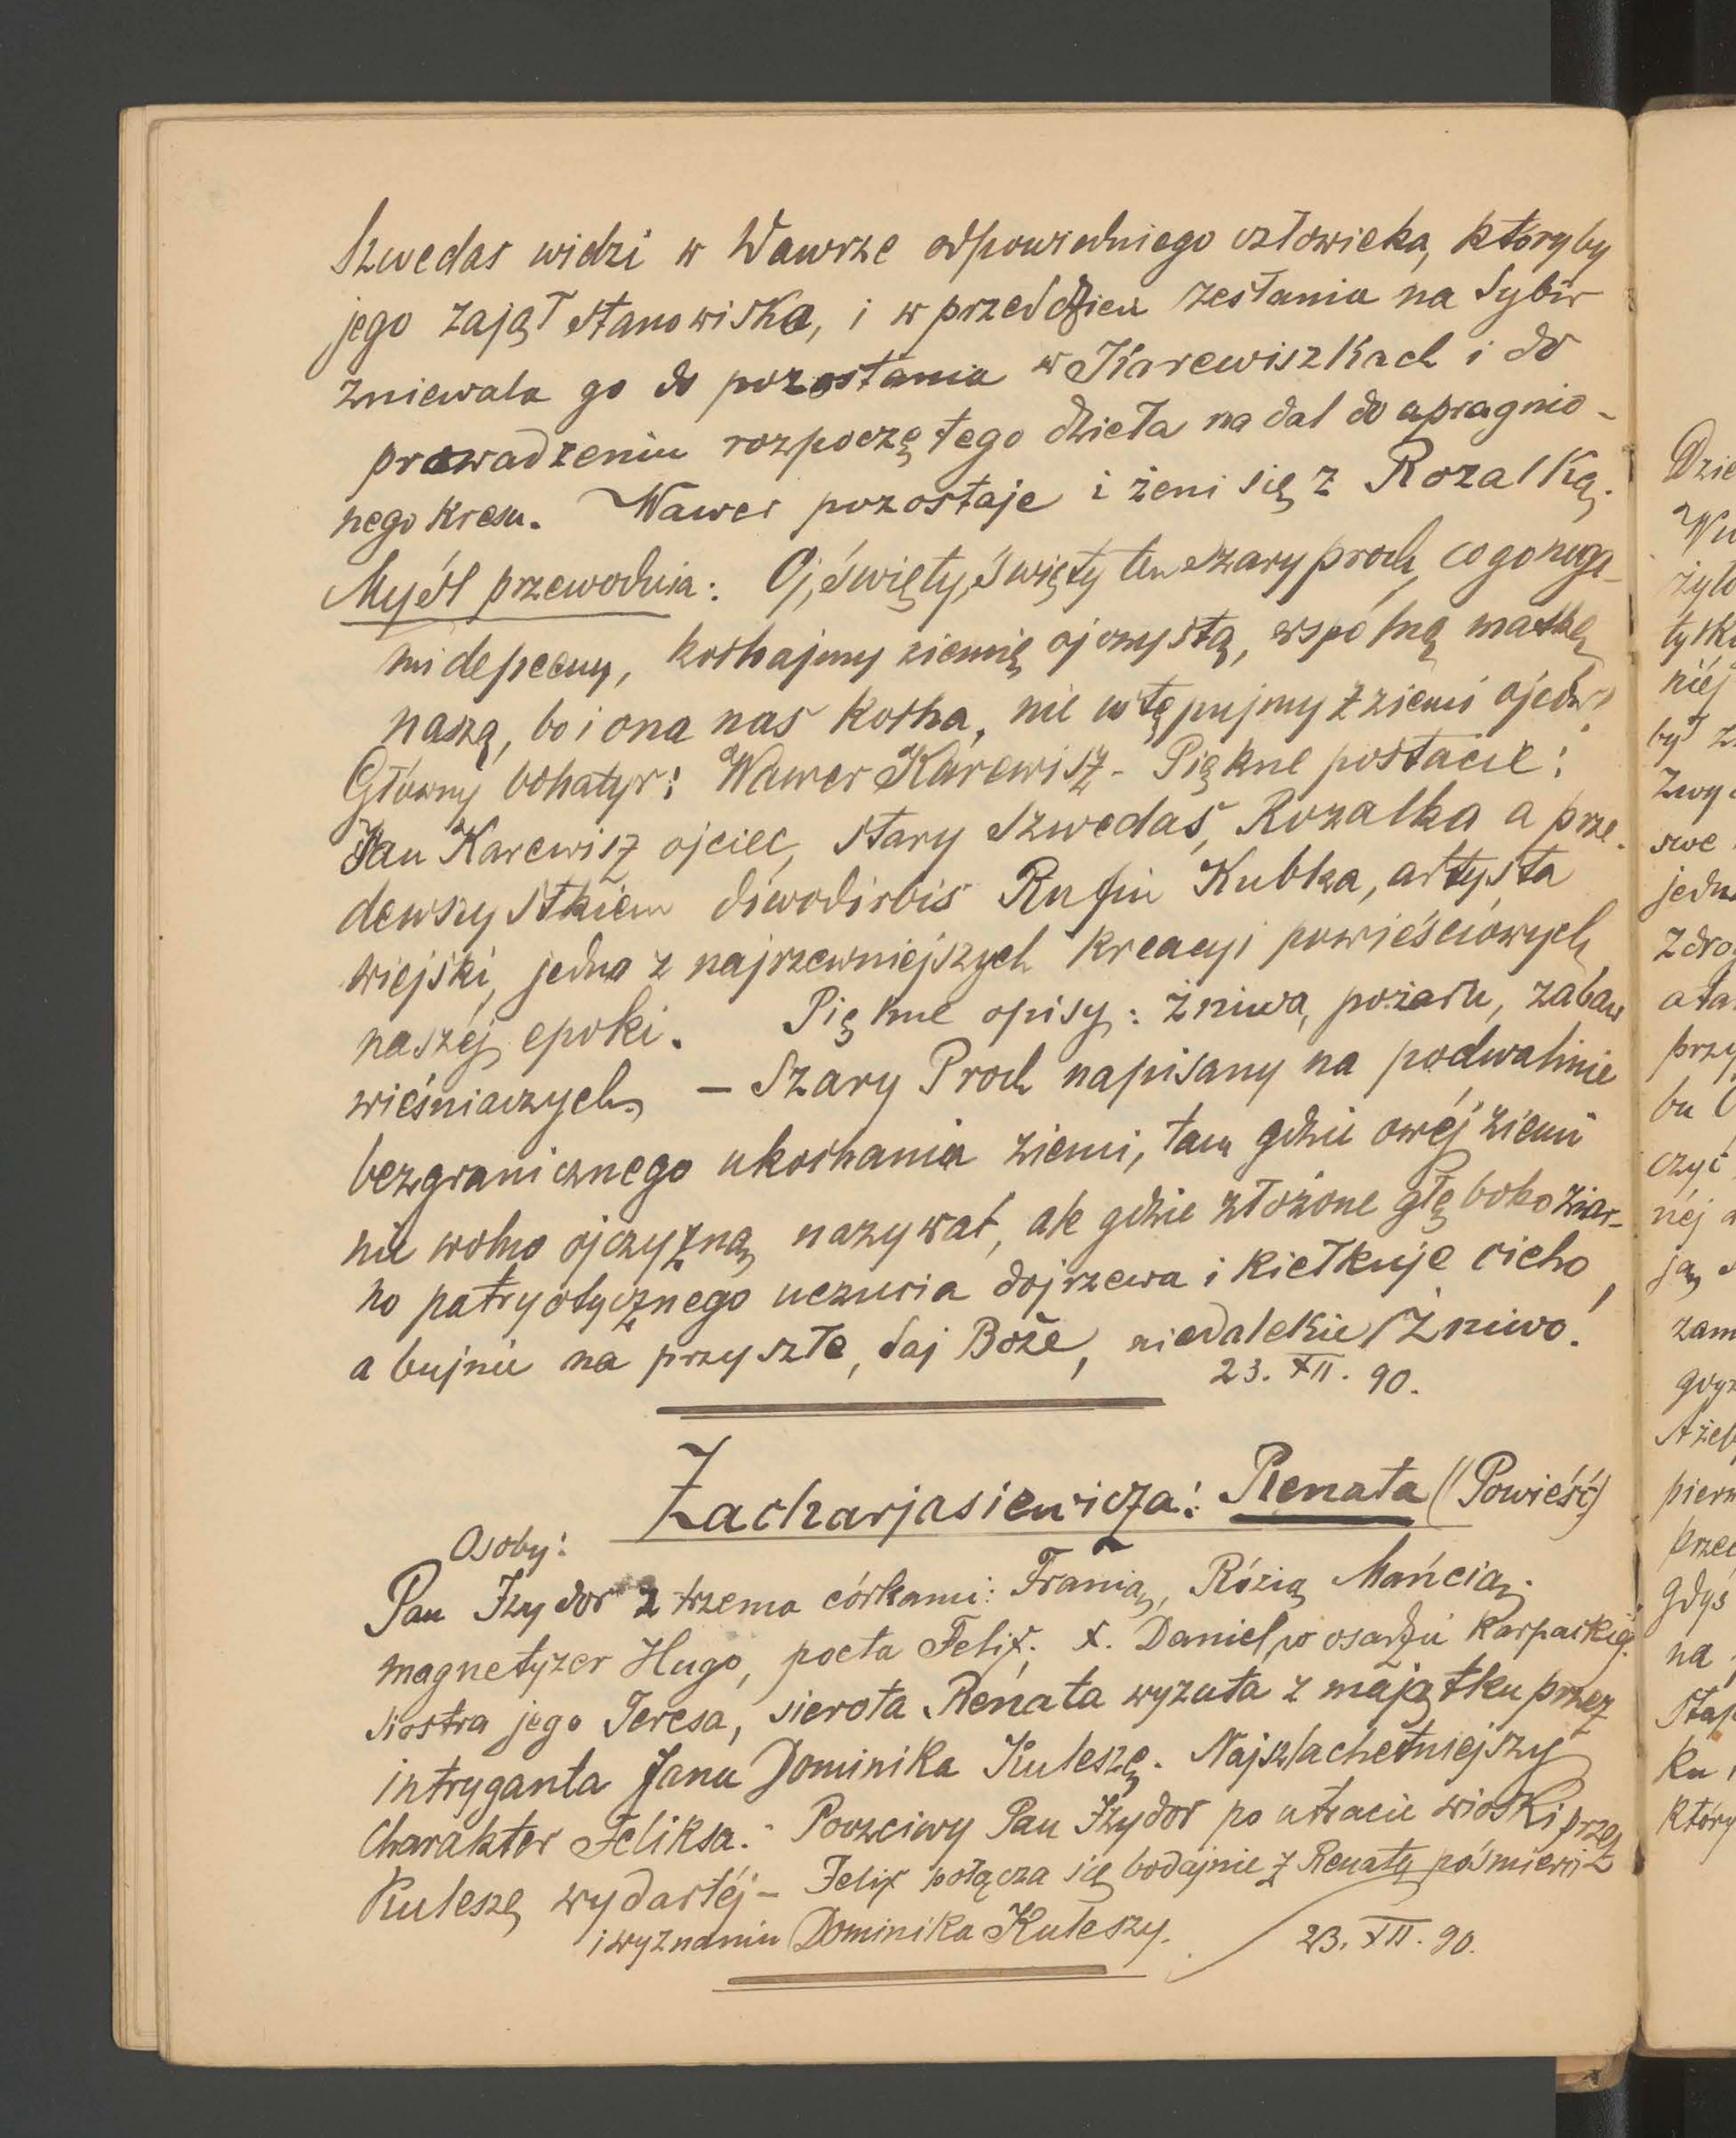 Szwedas widzi w Wawrze odpowiedniego człowieka, któryby
jego zajął stanowiska, i w przeddzień zesłania na Sybir
zniewala go do pozostania w Karewiszkach i do
prowadzeniu rozpoczętego dzieła na dal do upragnio-
nego kresu. Wawer pozostaje i żeni się z Rozalką.
Myśl przewodnia: Oj, święty, święty ten szary proch, co go noga-
mi depcemy, kochajmy ziemię ojczystą, wspólną matkę
naszą, bo i ona nas kocha, nie ustępujmy z ziemi ojców!
Główny bohatyr: Wawer Karewisz - Piękne postacie:
Jan Karewisz ojciec, stary Szwedas, Rozalka a prze-
dewszystkiem diwodirbis Rufin Kubka, artysta
wiejski, jedna z najrzewniejszych kreacyi powieściowych
naszéj epoki. Piękne opisy: żniwa, pożaru, zabaw
wieśniaczych. – Szary Proch napisany na podwalinie
bezgranicznego ukochania ziemi, tam gdzie owéj ziemi
nie wolno ojczyzną nazywać, ale gdzie złożone głęboko ziar-
no patryotycznego uczucia dojrzewa i kiełkuje cicho,
a bujnie na przyszłe, daj Boże, niedalekie żniwo!
23. XII. 90.
Zacharjasiewicza: Renata (Powieść)
Osoby:
Pan Izydor z trzema córkami: Franią, Rózią Mańcią.
magnetyzer Hugo, poeta Felix. X. Daniel w osadzie karpackiéj.
siostra jego Teresa, sierota Renata wyzuta z majątku przez
intryganta Jana Dominika Kuleszę. Najszlachetniejszy
charakter Feliksa. - Poczciwy Pan Izydor po utracie wioski przez
Kuleszę wydartéj – Felix połącza się bodajnie z Renatą po śmierci
i wyznaniu Dominika Kuleszy. 23. XII. 90.